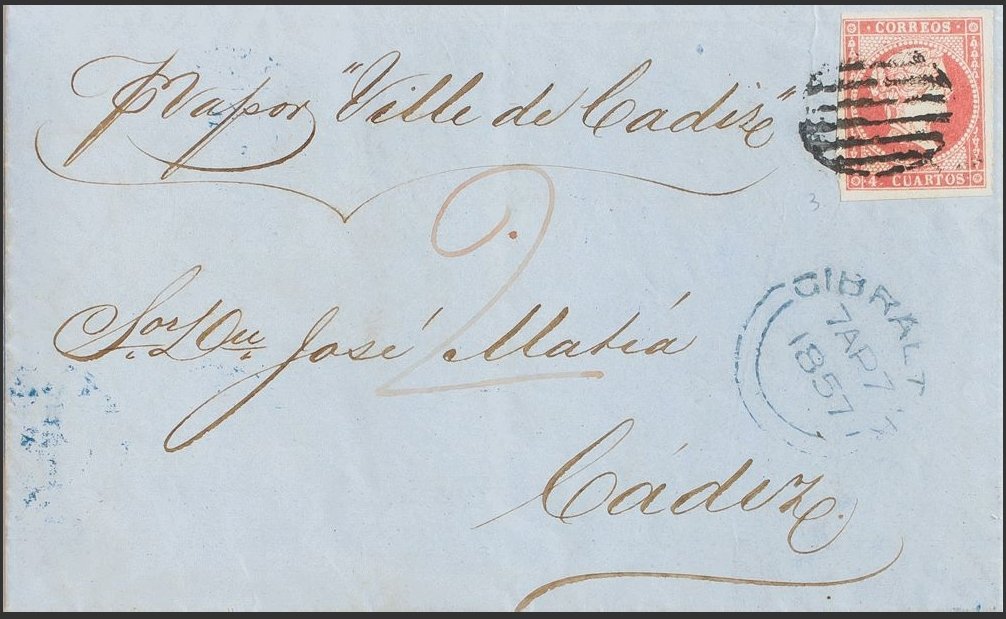 CORREOS
4 CUARTOS
P Vapor "Ville de Cadiz"
3
2
Sor Dn José Matiá
GIBRALT
7 AP 7
1857
Cádiz.